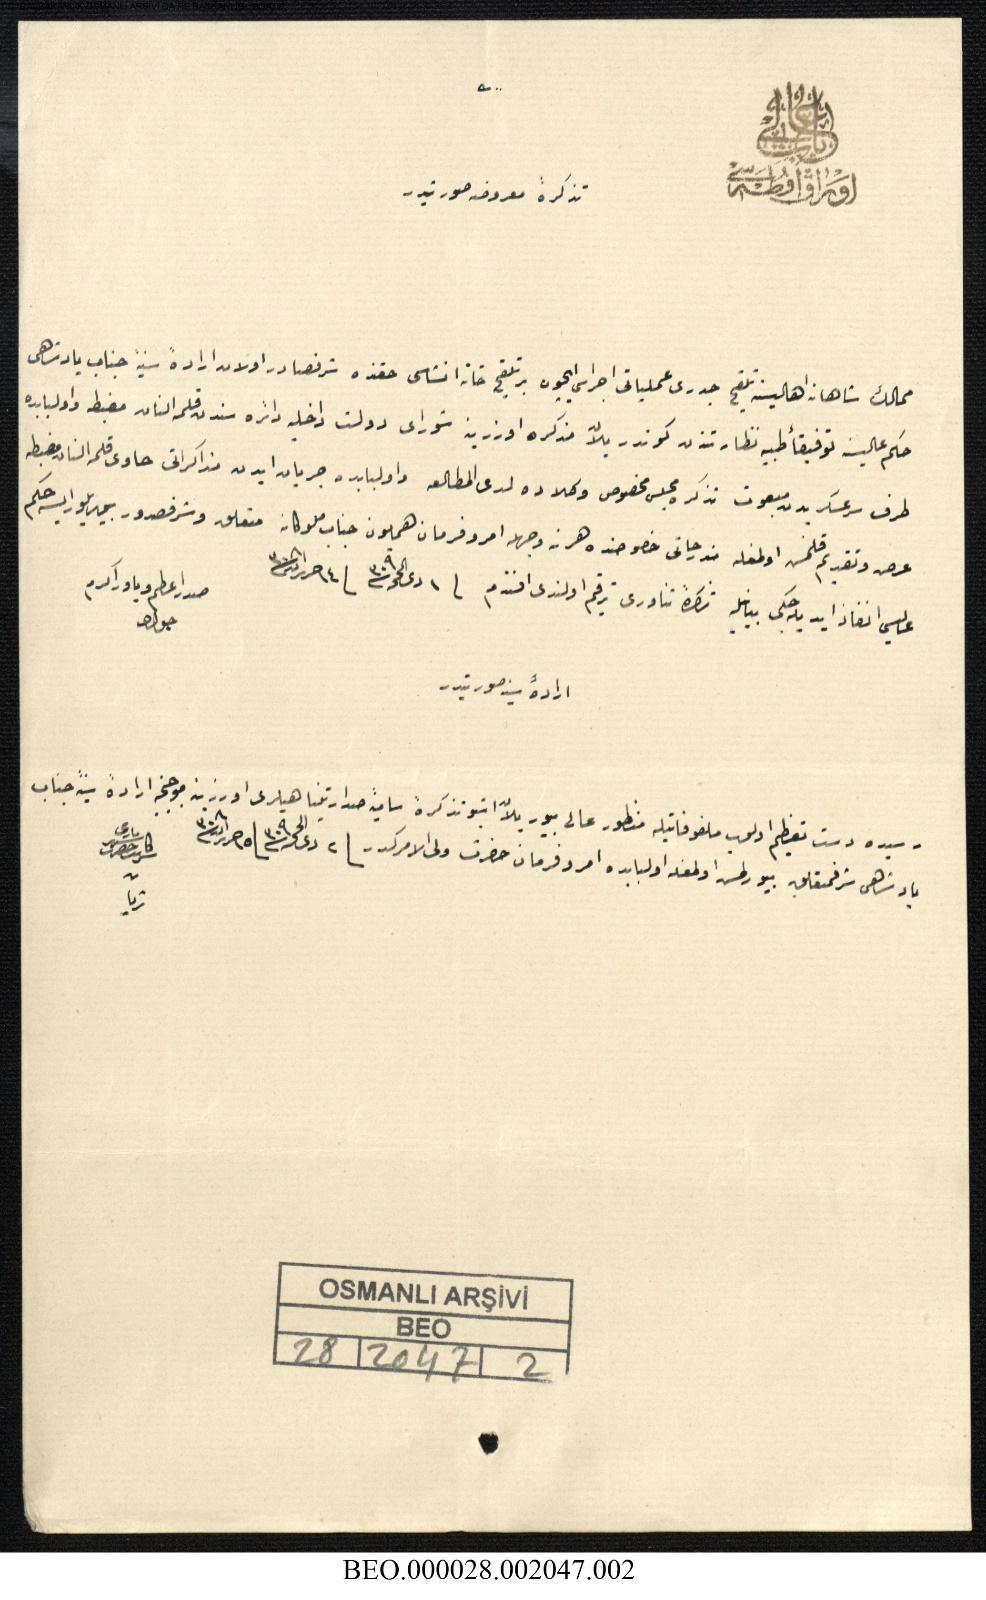 باب عالی
اوراق اوطه سی
تذکرۀ معروضه صورتیدر
ممالك شاهانه اهالیسنه تلقیح جدری عملیاتی اجراسی ایچون بر تلقیح خانه انشاسی حقنده شرفصادر اولان ارادۀ سنیۀ جناب پادشاهی
حکم عالیسنه توفیقاً طبیه نظارتندن کوندریلان مذکره اوزرینه شورای دولت داخلیه دائره سندن قلمه النان مضبطه واولبابده
طرف سرعسکریدن مبعوث تذکره مجلس مخصوص وکلاده لدی المطالعه واولبابده جریان ایدن مذاکراتی حاوی قلمه النان مضبطه
عرض وتقدیم قلنمش اولمغله مندرجاتی خصوصنده هر نه وجهله امر وفرمان همایون جناب ملوکانه متعلق وشرفصدور بیوریلور ایسه حکم
عالیسی انفاذ ایدیله جکی بیانیله تذکرۀ ثناوری ترقیم اولندی افندم ١ ذی الحجه ٣٠٩ ١٤ حزیران ٣٠٨
صدراعظم ویاور اکرم
جواد
ارادۀ سنیه صورتیدر
رسیدۀ دست تعظیم اولوب ملفوفاتیله منظور عالی بیوریلان اشبو تذکرۀ سامیۀ صدارتپناهیلری اوزرینه موجبنجه ارادۀ سنیۀ جناب
پادشاهی شرفمتعلق بیورلمش اولمغله اولبابده امر وفرمان حضرت ولی الامرکدر ٢ ذی الحجه ٣٠٩ ١٥ حزیران ٣٠٨
سرکاتب حضرت شهریاری
ثریا
OSMANLI ARŞİVİ
BEO
28 2047 2
BEO.000028.002047.002